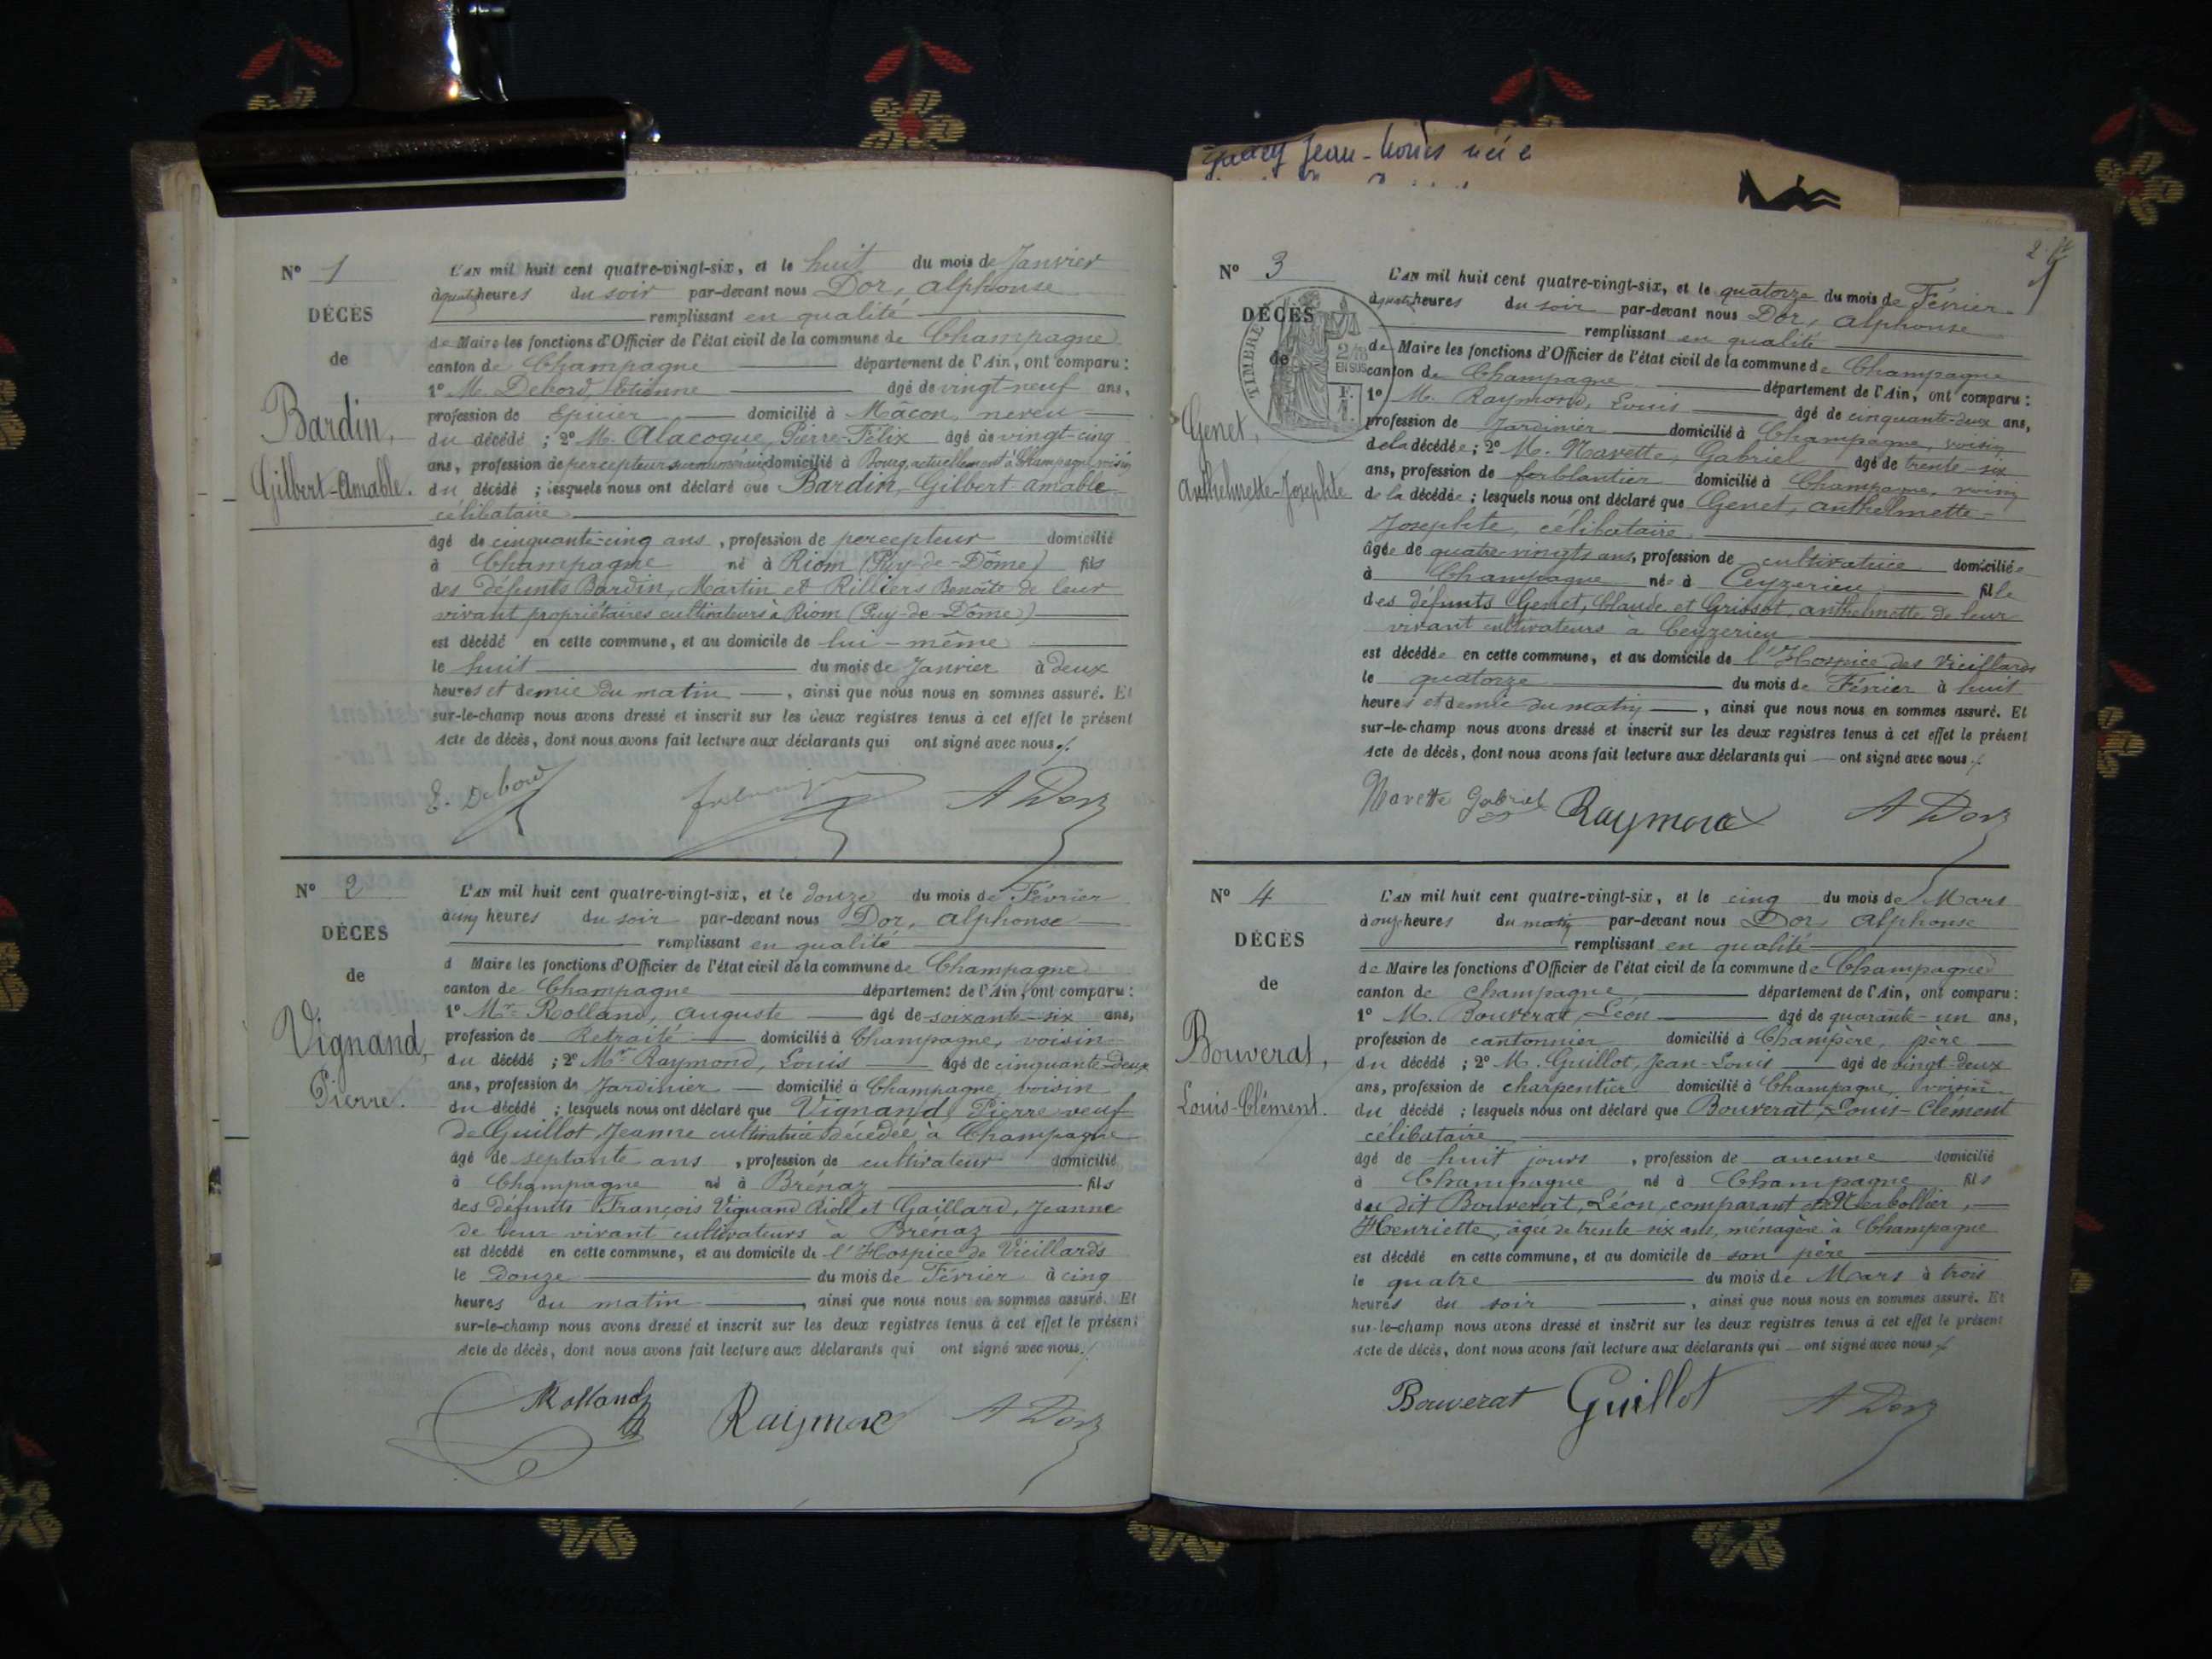 N° 1
DÉCÈS
de
Bardin,
Gilbert-Amable.
L'AN mil huit cent quatre-vingt-six, et le huit du mois de Janvier
à quatre heures du soir par-devant nous Dor, Alphonse
remplissant en qualité
de Maire les fonctions d'Officier de l'état civil de la commune de Champagne
canton de Champagne département de l'Ain, ont comparu :
1° M. Debord, Etienne âgé de vingt-neuf ans,
profession de Epicier domicilié à Macon, neveu
du décédé ; 2° M. Alacoque, Pierre-Félix âgé de vingt-cinq
ans, profession de percepteur surnuméraire domicilié à Bourg, actuellement à Champagne, voisin
du décédé ; lesquels nous ont déclaré que Bardin, Gilbert amable
célibataire
âgé de cinquante-cinq ans, profession de percepteur domicilié
à Champagne né à Riom (Puy-de-Dôme) fils
des défunts Bardin, Martin et Rilliers Benoîte de leur
vivant propriétaires cultivateurs à Riom (Puy-de-Dôme)
est décédé en cette commune, et au domicile de lui-même
le huit du mois de Janvier à deux
heures et demie du matin, ainsi que nous nous en sommes assuré. Et
sur-le-champ nous avons dressé et inscrit sur les deux registres tenus à cet effet le présent
Acte de décès, dont nous avons fait lecture aux déclarants qui ont signé avec nous.
E. Debord A Dor
N° 2
DÉCES
de
Vignand,
Pierre.
L'AN mil huit cent quatre-vingt-six, et le douze du mois de Février
à cinq heures du soir par-devant nous Dor, Alphonse
remplissant en qualité
d Maire les fonctions d'Officier de l'état civil de la commune de Champagne
canton de Champagne département de l'Ain, ont comparu :
1° Mr Rolland, Auguste âgé de soixante-six ans,
profession de Retraité domicilié à Champagne, voisin
du décédé ; 2° Mr Raymond, Louis âgé de cinquante-deux
ans, profession de Jardinier domicilié à Champagne, voisin
du décédé ; lesquels nous ont déclaré que Vignand, Pierre veuf
de Guillot, Jeanne cultivatrice décédée à Champagne
âgé de septante ans, profession de cultivateur domicilié
à Champagne né à Brénaz fils
des défunts François Vignand Riol et Gaillard, Jeanne
de leur vivant cultivateurs à Brénaz
est décédé en cette commune, et au domicile de l'Hospice de Vieillards
le Douze du mois de Février à cinq
heures du matin, ainsi que nous nous en sommes assuré. Et
sur-le-champ nous avons dressé et inscrit sur les deux registres tenus à cet effet le présent
Acte de décès, dont nous avons fait lecture aux déclarants qui ont signé avec nous.
Rolland Raymond A Dor
Jean-Louis né e
N° 3
DÉCÈS
de
TIMBRE
2/10
EN SUS
F.
1
Genet,
Anthelmette-Josephte
L'AN mil huit cent quatre-vingt-six, et le quatorze du mois de Février
à quatre heures du soir par-devant nous Dor, Alphonse
remplissant en qualité
de Maire les fonctions d'Officier de l'état civil de la commune de Champagne
canton de Champagne département de l'Ain, ont comparu :
1° M. Raymond, Louis âgé de cinquante-deux ans,
profession de Jardinier domicilié à Champagne, voisin
de la décédée ; 2° M. Navette, Gabriel âgé de trente-six
ans, profession de ferblantier domicilié à Champagne, voisin
de la décédée ; lesquels nous ont déclaré que Genet, anthelmette-
Josephte, célibataire
âgée de quatre vingts ans, profession de cultivatrice domiciliée
à Champagne née à Ceyzerieu fille
des défunts Genet, Claude et Grissot, anthelmette de leur
vivant cultivateurs à Ceyzerieu
est décédée en cette commune, et au domicile de l'Hospice des Vieillards
le quatorze du mois de Février à huit
heures et demie du matin, ainsi que nous nous en sommes assuré. Et
sur-le-champ nous avons dressé et inscrit sur les deux registres tenus à cet effet le présent
Acte de décès, dont nous avons fait lecture aux déclarants qui ont signé avec nous.
Navette Gabriel Raymond A Dor
N° 4
DÉCÈS
de
Bouverat,
Louis-Clément.
L'AN mil huit cent quatre-vingt-six, et le cinq du mois de Mars
à onze heures du matin par-devant nous Dor, Alphonse
remplissant en qualité
de Maire les fonctions d'Officier de l'état civil de la commune de Champagne
canton de Champagne département de l'Ain, ont comparu :
1° M. Bouverat, Léon âgé de quarante-un ans,
profession de cantonnier domicilié à Champère, père
du décédé ; 2° M. Guillot, Jean-Louis âgé de vingt-deux
ans, profession de charpentier domicilié à Champagne, voisin
du décédé ; lesquels nous ont déclaré que Bouverat, Louis-Clément
célibataire
âgé de huit jours, profession de aucune domicilié
à Champagne né à Champagne fils
du dit Bouverat, Léon, comparant et
Henriette, âgée de trente six ans, ménagère à Champagne
est décédé en cette commune, et au domicile de son père
le quatre du mois de Mars à trois
heures du soir, ainsi que nous nous en sommes assuré. Et
sur-le-champ nous avons dressé et inscrit sur les deux registres tenus à cet effet le présent
Acte de décès, dont nous avons fait lecture aux déclarants qui ont signé avec nous
Bouverat Guillot A Dor